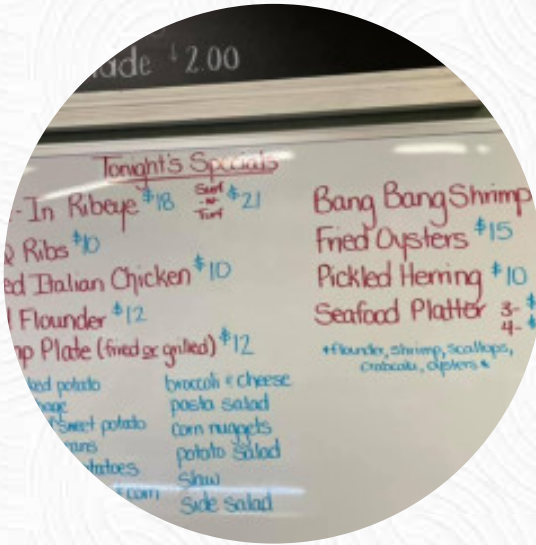 ade $2.00
Tonight's Specials
-In Ribeye $18 Surf -n- Turf $21
Q Ribs $10
ed Italian Chicken $10
Flounder $12
p Plate (fried or grilled) $12
ked potato
sweet potato
tatoes
corn
broccoli & cheese
pasta salad
corn nuggets
potato salad
slaw
side salad
Bang Bang Shrimp
Fried Oysters $15
Pickled Herring $10
Seafood Platter 3- $
4- $
*flounder, shrimp, scallops,
crabcake, oysters*